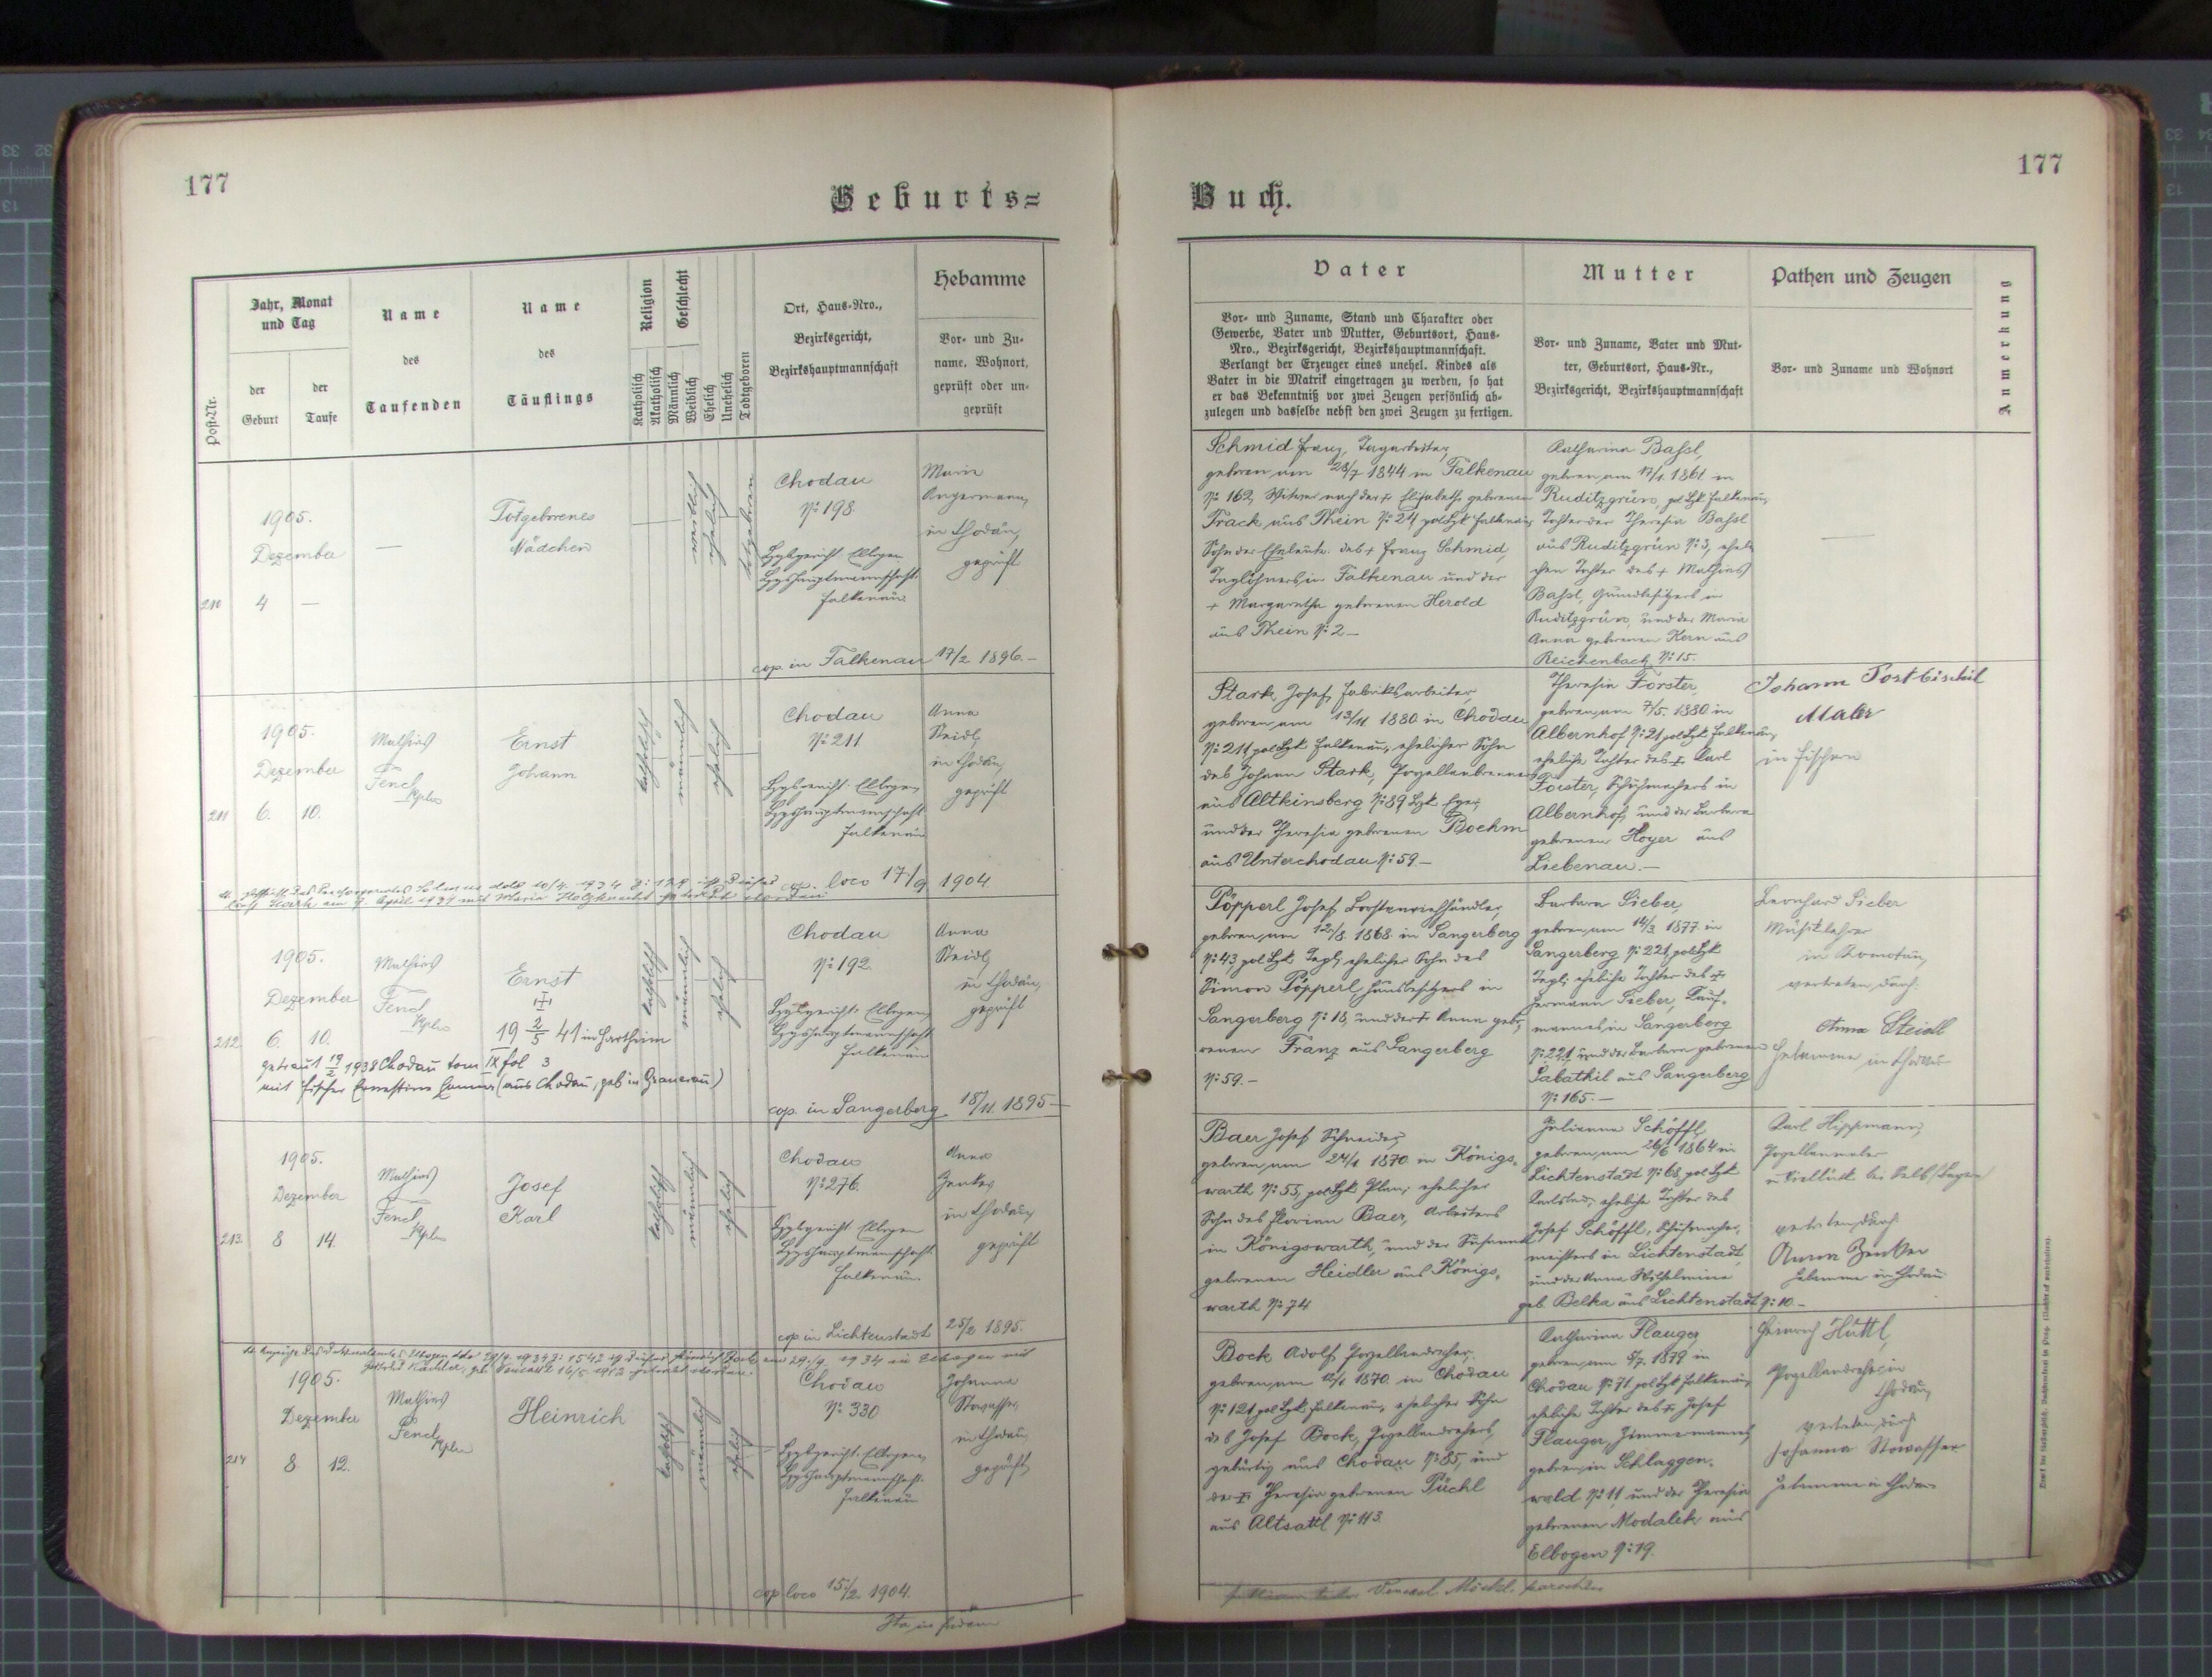 177
Geburts=
Post-Nr.
Jahr, Monat
und Tag
der
Geburt
der
Taufe
Name
des
Taufenden
Name
des
Täuflings
Religion
Katholisch
Akatholisch
Geschlecht
Männlich
Weiblich
Ehelich
Unehelich
Todtgeboren
Ort, Haus-Nro.,
Bezirksgericht,
Bezirkshauptmannschaft
Hebamme
Vor- und Zu-
name, Wohnort,
geprüft oder un-
geprüft
210
1905.
Dezember
4 —
—
Totgeborenes
Mädchen
weiblich
ehelich
totgeboren
Chodau
No 198.
Bzksgericht: Elbogen
Bzkshauptmannschaft:
Falkenau
Marie
Angermann,
in Chodau,
geprüft
cop. in Falkenau 17/2 1896.—
211
1905.
Dezember
6. 10.
Mathias
Fencl
Kplan
Ernst
Johann
katholisch
männlich
ehelich
Chodau
No 211
Bzksgericht: Elbogen,
Bzkshauptmannschaft
Falkenau
Anna
Steidl,
in Chodau,
geprüft
cop. loco 17/9 1904.
212.
1905.
Dezember
6. 10.
Mathias
Fencl
Kplan
Ernst
19 2/5 41 in Hartheim
getraut 19/2 1938 Chodau tom IX fol 3
mit Fischer Ernestine Emma (aus Chodau, geb in Granesau)
katholisch
männlich
ehelich
Chodau
No 192.
Bzksgericht: Elbogen,
Bzkshauptmannschaft
Falkenau
Anna
Steidl,
in Chodau,
geprüft
cop. in Sangerberg 18/11. 1895—
213.
1905.
Dezember
8 14.
Mathias
Fencl
Kplan
Josef
Karl
katholisch
männlich
ehelich
Chodau
No 276.
Bzksgericht Elbogen
Bzkshauptmannschaft.
Falkenau.
Anna
Zenker,
in Chodau,
geprüft
cop. in Lichtenstadt 25/2 1895.
214
1905.
Dezember
8 12.
Mathias
Fencl
Kplan
Heinrich
katholisch
männlich
ehelich
Chodau
No 330
Bzksgericht: Elbogen,
Bzkshauptmannschaft.
Falkenau
Johanna
Stowasser,
in Chodau,
geprüft,
cop loco 15/2. 1904.
177
Buch.
Vater
Vor- und Zuname, Stand und Charakter oder
Gewerbe, Vater und Mutter, Geburtsort, Haus-
Nro., Bezirksgericht, Bezirkshauptmannschaft.
Verlangt der Erzeuger eines unehel. Kindes als
Vater in die Matrik eingetragen zu werden, so hat
er das Bekenntniß vor zwei Zeugen persönlich ab-
zulegen und dasselbe nebst den zwei Zeugen zu fertigen.
Mutter
Vor- und Zuname, Vater und Mut-
ter, Geburtsort, Haus-Nr.,
Bezirksgericht, Bezirkshauptmannschaft
Pathen und Zeugen
Vor- und Zuname und Wohnort
Anmerkung
Schmid Franz, Tagarbeiter,
geboren am 28/7 1844 in Falkenau
No 162, Witwer nach der + Elisabeth geborenen
Track aus Thein No 24 pol Bzk Falkenau,
Sohn der Eheleute: des + Franz Schmid,
Taglöhners in Falkenau und der
+ Margaretha geborenen Herold
aus Thein No 2—
Katharina Baßl,
geboren am 17/1. 1861 in
Ruditzgrün, pol Bzk Falkenau,
Tochter der Theresia Baßl
aus Ruditzgrün No 3, eheli
chen Tochter des + Mathias
Baßl, Grundbesitzers in
Ruditzgrün, und der Maria
Anna geborenen Kern aus
Reichenbach No 15.
—
Stark, Josef, Fabriksarbeiter,
geboren am 13/11 1880 in Chodau
No 211 pol Bzk Falkenau, ehelicher Sohn
des Johann Stark, Porzellanbrenners
aus Altkinsberg No 89 Bzk Eger,
und der Theresia geborenen Boehm
aus Unterchodau No 59.—
Theresia Forster,
geboren am 7/5. 1880 in
Albernhof No 21 pol Bzk Falkenau,
eheliche Tochter des + Karl
Forster, Schuhmachers in
Albernhof, und der Barbara
geborenen Hoyer aus
Liebenau.—
Johann Postbischil
Maler
in Fischern
Pöpperl Josef, Borstenviehhändler,
geboren am 12/8. 1868. in Sangerberg
No 43 pol Bzk Tepl, ehelicher Sohn des
Simon Pöpperl, Hausbesitzers in
Sangerberg No 18, und der + Anna gebo-
renen Franz aus Sangerberg
No 59.—
Barbara Sieber,
geboren am 14/3 1877 in
Sangerberg No 221, pol Bzk
Tepl, eheliche Tochter des +
Hermann Sieber, Kauf-
mannes in Sangerberg
No 221 und der Barbara geborenen
Sabathil aus Sangerberg
No 165.—
Leonhard Sieber
Musiklehrer
in Komotau,
vertreten durch:
Anna Steidl
Hebamme in Chodau
Baer Josef Schneider,
geboren am 24/1 1870 in Königs-
warth No 55, pol Bzk Plan, ehelicher
Sohn des Florian Baer, Arbeiters
in Königswarth, und der Susanna
geborenen Heidler aus Königs-
warth No 74
Julianna Schöffl,
geboren am 26/6 1864 in
Lichtenstadt No 68, pol Bzk
Karlsbad, eheliche Tochter des
Josef Schöffl, Schuhmacher-
meisters in Lichtenstadt,
und der Anna Wilhelmine
geb. Belka aus Lichtenstadt No 10.—
Karl Hippmann,
Porzellanmaler
vertreten durch
Anna Zenker
Hebamme in Chodau
Bock Adolf, Porzellandreher,
geboren am 12/1 1870 in Chodau
No 121 pol Bzk Falkenau, ehelicher Sohn
des Josef Bock, Porzellandrehers,
gebürtig aus Chodau No 85, und
der + Theresia geborenen Püchl
aus Altsattl No 113.
Katharina Flauger,
geboren am 5/7. 1879 in
Chodau No 71 pol Bzk Falkenau,
eheliche Tochter des + Josef
Flauger, Zimmermannes,
geboren in Schlaggen-
wald No 11 und der Theresia
geborenen Modalek aus
Elbogen No 19.
Heinrich Hüttl,
Porzellandreher in
Chodau,
vertreten durch
Johanna Stowasser
Hebamme in Chodau
Venzel Möckl, parochus